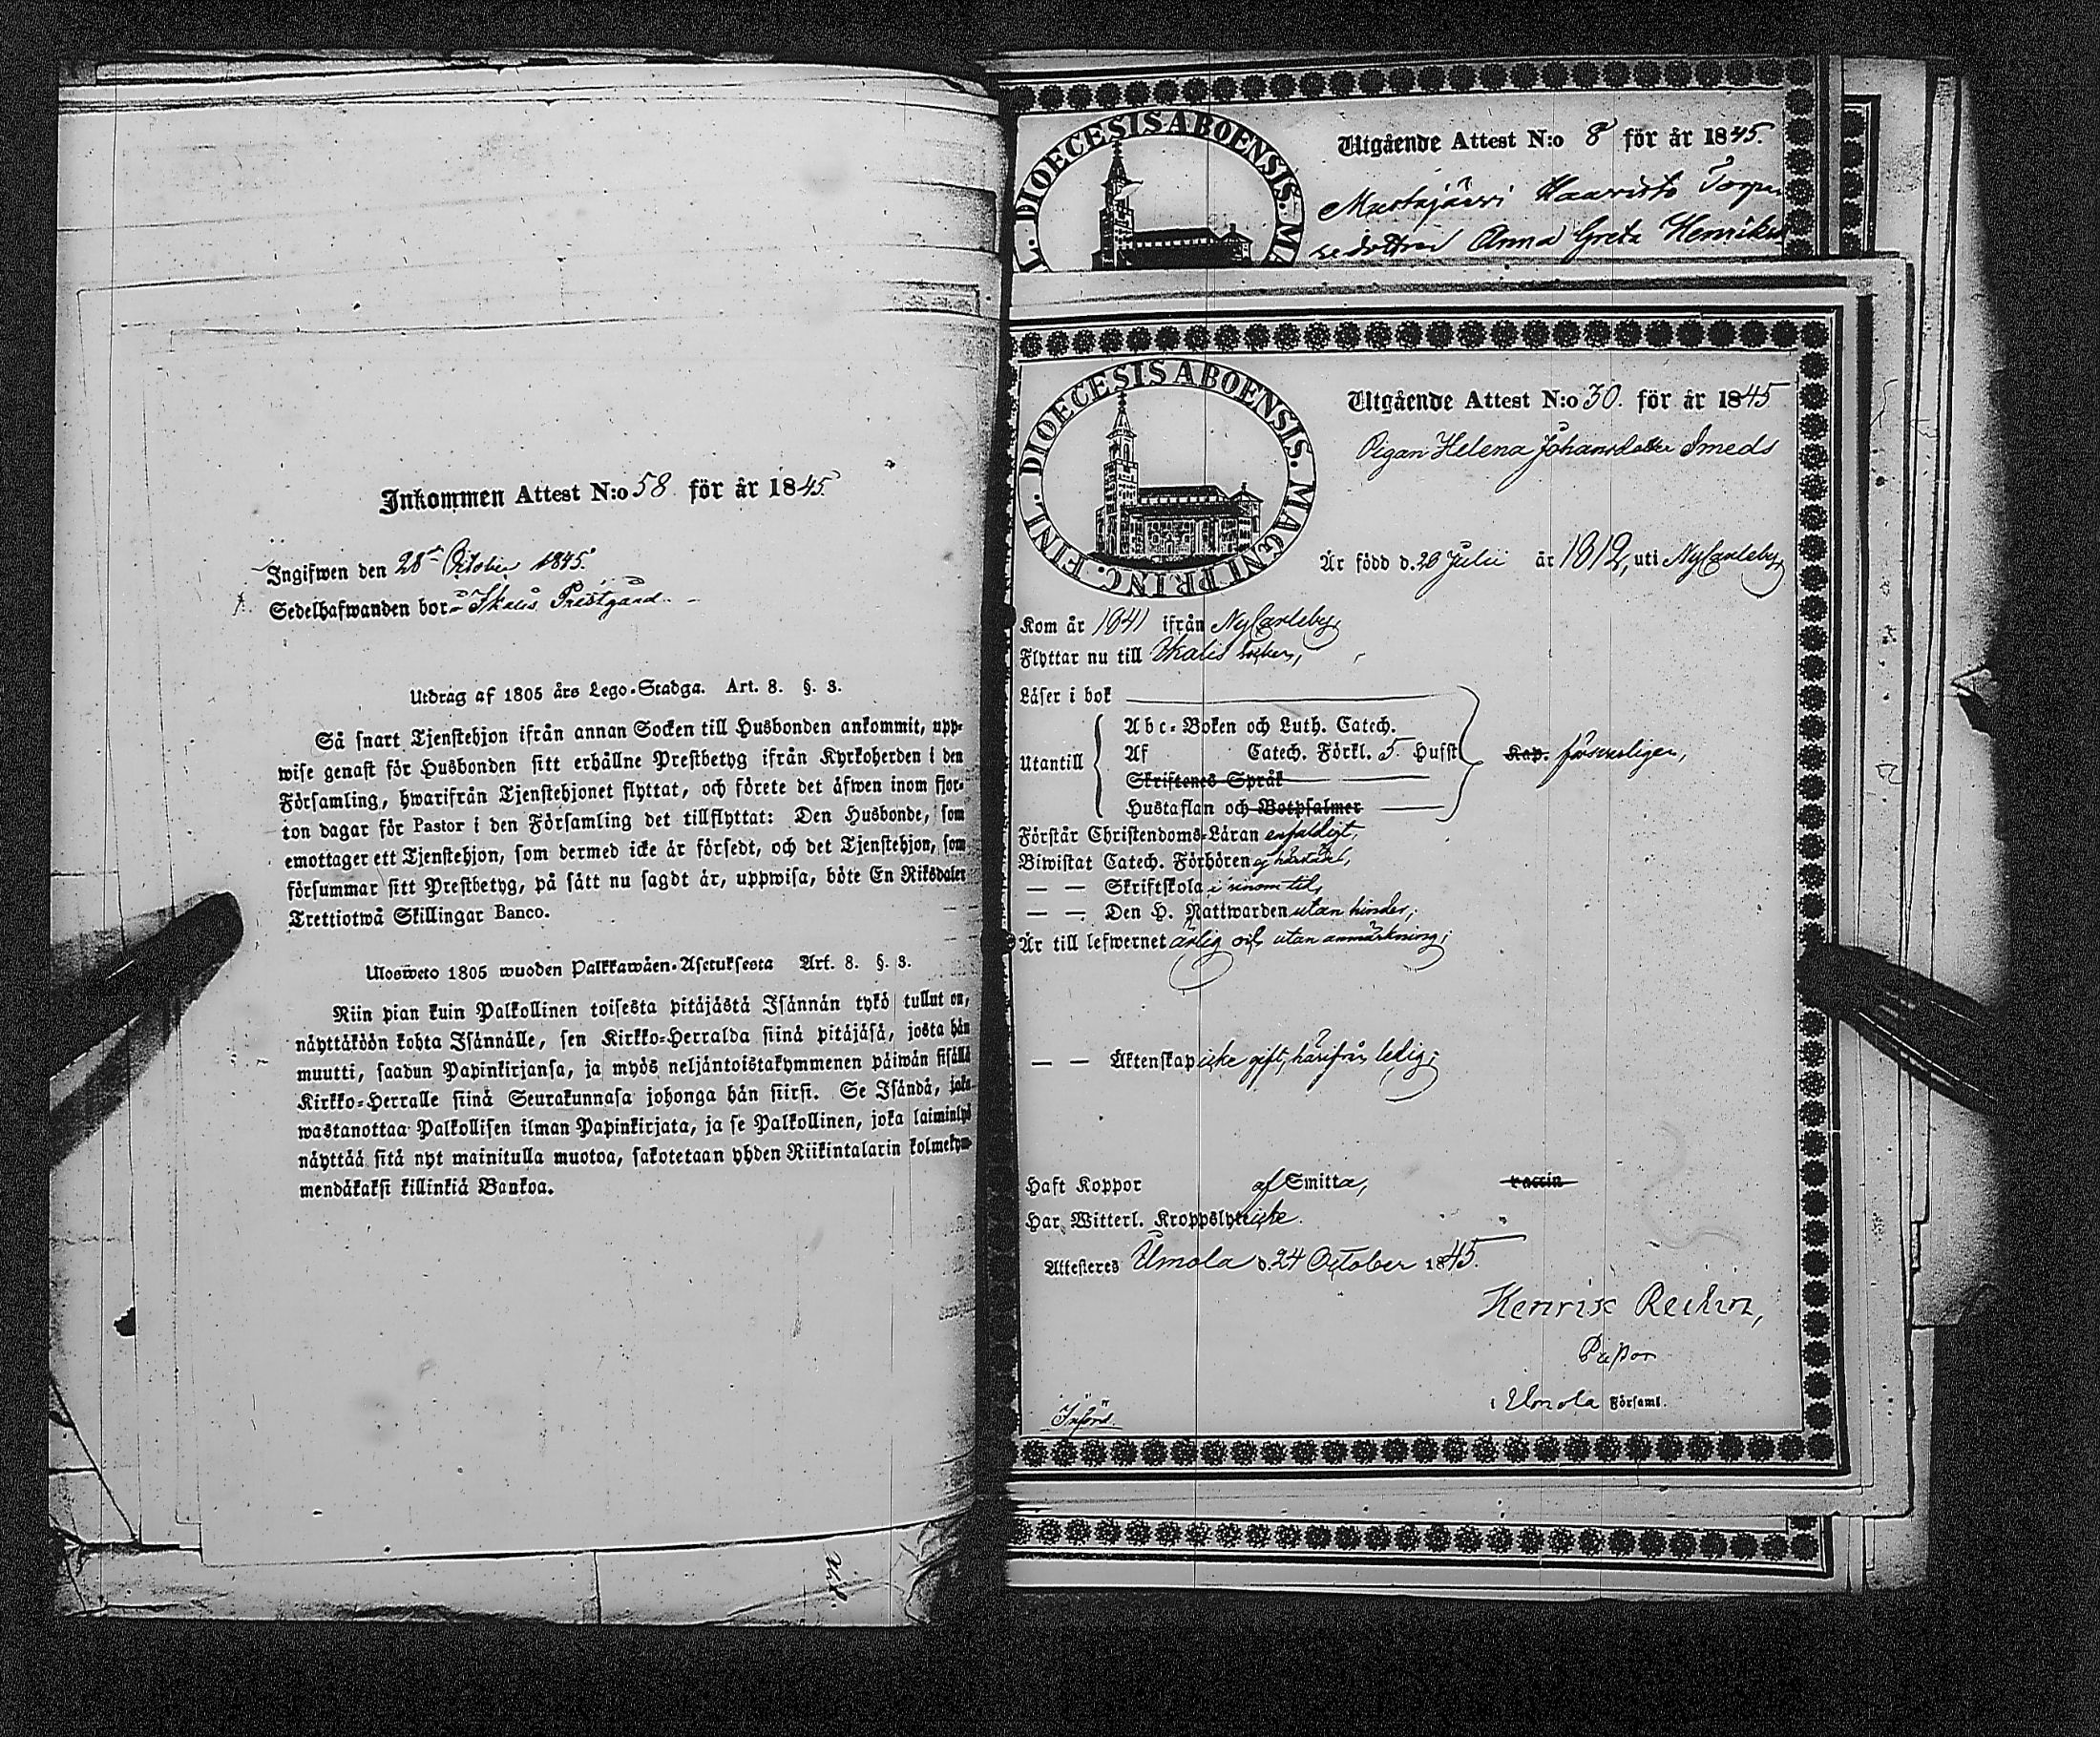 Inkommen Attest N:o 58. för år 1845.
Ingifwen den 28de October 1845.
Sedelhafwanden bor Ikalis Prestgård.
Utdrag af 1805 års Lego-Stadga. Art. 8. §. 3.
Så snart Tjenstehjon ifrån annan Socken till Husbonden ankommit, upp-
wise genast för Husbonden sitt erhållne Prestbetyg ifrån Kyrkoherden i den
Församling, hwarifrån Tjenstehjonet flyttat, och förete det äfwen inom fjor-
ton dagar för Pastor i den Församling det tillflyttat: Den Husbonde, som
emottager ett Tjenstehjon, som dermed icke är försedt, och det Tjenstehjon, som
försummar sitt Prestbetyg, på sätt nu sagdt är, uppwisa, böte En Riksdaler
Trettiotwå Skillingar Banco.
Ulosweto 1805 wuoden Palkkawäen-Asetuksesta Art. 8. §. 3.
Niin pian kuin Palkollinen toisesta pitäjästä Isännän tykö tullut on,
näyttäköön kohta Isännälle, sen Kirkko-Herralda siinä pitäjäsä, josta hän
muutti, saadun Papinkirjansa, ja myös neljäntoistakymmenen päiwän sisällä
Kirkko-Herralle siinä Seurakunnasa johonga hän siirsi. Se Isändä, joka
wastanottaa Palkollisen ilman Papinkirjata, ja se Palkollinen, joka laiminlyö
näyttää sitä nyt mainitulla muotoa, sakotetaan yhden Riikintalarin kolmekym-
mendäkaksi killinkiä Bankoa.
L. DIOECESIS ABOENSIS. MA
Utgående Attest N:o 8 för år 1845.
Mustajärvi Haavisto Torpa
Anna Greta Henriks
FINL. DIOECESIS ABOENSIS. MAGNI PRINC.
Utgående Attest N:o 30. för år 1845
Pigan Helena Johansdotter Smeds
Är född d. 20 Julii år 1812, uti NyCarleby,
Kom år 1841 ifrån NyCarleby,
Flyttar nu till Ikalis Socken,
Läser i bok
Utantill
Abc-Boken och Luth. Catech.
Af Catech. Förkl. 5. Hufst
Skriftenes Språk
Hustaflan och Botpsalmer
Kap. försvarligen,
Förstår Christendoms-Läran enfaldigt,
Biwistat Catech. Förhören ej härstädes,
— — Skriftskola i sinom tid,
— — Den H. Nattwarden utan hinder,
Är till lefwernet ärlig och utan anmärkning;
— — Äktenskap icke gift, härifrån ledig;
Haft Koppor af Smitta, vaccin
Har Witterl. Kroppslyte icke.
Attesteres Ulmola d. 24 October 1845.
Henrik Reihin,
Pastor
i Ulmola Församl.
Införd.